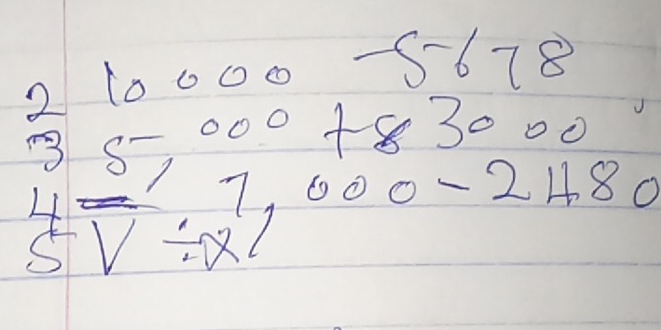 2 10000 -5678
3 5,000 +83000
4 7,000-2480
5 V ÷x/